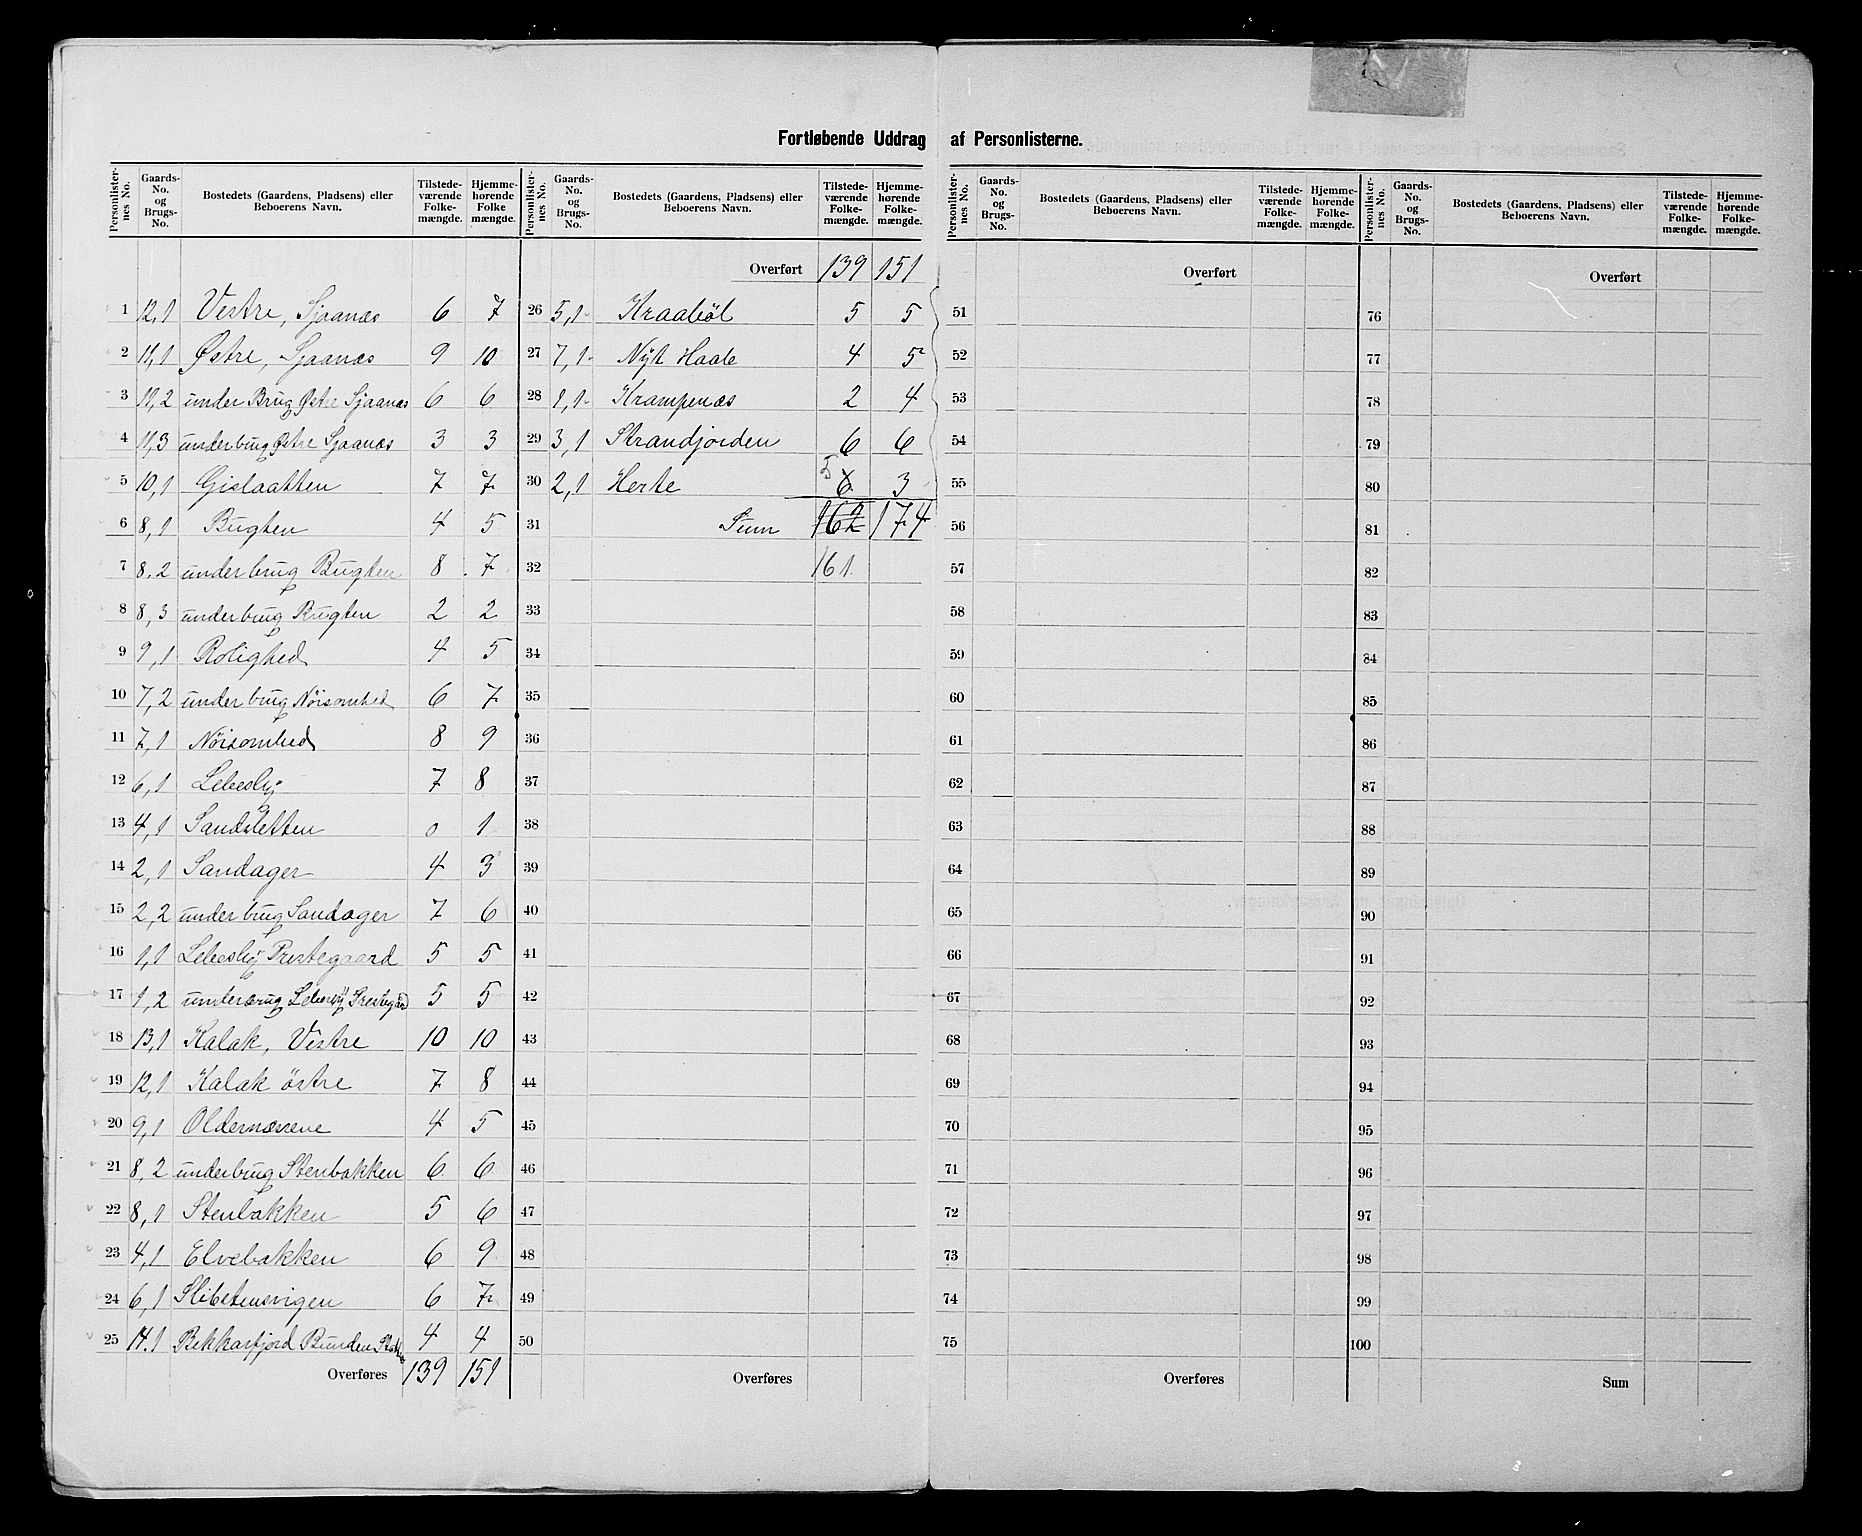 Fortløbende Uddrag af Personlisterne.
Personlister-nes No. | Gaards-No. og Brugs-No. | Bostedets (Gaardens, Pladsens) eller Beboerens Navn. | Tilstede-værende Folke-mængde. | Hjemme-hørende Folke mængde.
1 12,1 Vestre, Sjaanæs 6 7
2 11,1 Østre, Sjaanæs 9 10
3 11,2 under Brug Østre Sjaanæs 6 6
4 11,3 underbrug Østre Sjaanæs 3 3
5 10,1 Gislaatten 7 7
6 8,1 Bugten 4 5
7 8.2 underbrug Bugten 8 7
8 8,3 underbrug Bugten 2 2
9 9,1 Rolighed 4 5
10 7,2 underbrug Nöisomhed 6 7
11 7,1 Nöisomhed 8 9
12 6,1 Lebesby 7 8
13 4,1 Sandsletten 0 1
14 2,1 Sandager 4 3
15 2,2 underbrug Sandager 7 6
16 1,1 Lebesby Prestegaard 5 5
17 1,2 underbrug Lebesby Prestegård 5 5
18 13,1 Kalak, Vestre 10 10
19 12,1 Kalak östre 7 8
20 9,1 Oldernæsene 4 5
21 8,2 underbrug Stenbakken 6 6
22 8,1 Stenbakken 5 6
23 4,1 Elvebakken 6 9
24 6,1 Slibstensvigen 6 7
25 14.1 Bekkarfjord Bunden 4 4
Overføres 139 151
Personlister-nes No. | Gaards-No. og Brugs-No. | Bostedets (Gaardens, Pladsens) eller Beboerens Navn. | Tilstede-værende Folke-mængde. | Hjemme-hørende Folke-mængde.
Overført 139 151
26 5,1 Kraaböl 5 5
27 7,1 Nijt Haab 4 5
28 1,1 Krampenæs 2 4
29 3,1 Strandjorden 6 6
30 2,1 Herte 5 6 3
31 Sum 162 174
32 161
33
34
35
36
37
38
39
40
41
42
43
44
45
46
47
48
49
50
Overføres
Personlister-nes No. | Gaards-No. og Brugs-No. | Bostedets (Gaardens, Pladsens) eller Beboerens Navn. | Tilstede-værende Folke-mængde. | Hjemme-hørende Folke-mængde.
Overført
51
52
53
54
55
56
57
58
59
60
61
62
63
64
65
66
67
68
69
70
71
72
73
74
75
Overføres
Personlister-nes No. | Gaards-No. og Brugs-No. | Bostedets (Gaardens, Pladsens) eller Beboerens Navn. | Tilstede-værende Folke-mængde. | Hjemme-hørende Folke-mængde.
Overført
76
77
78
79
80
81
82
83
84
85
86
87
88
89
90
91
92
93
94
95
96
97
98
99
100
Sum